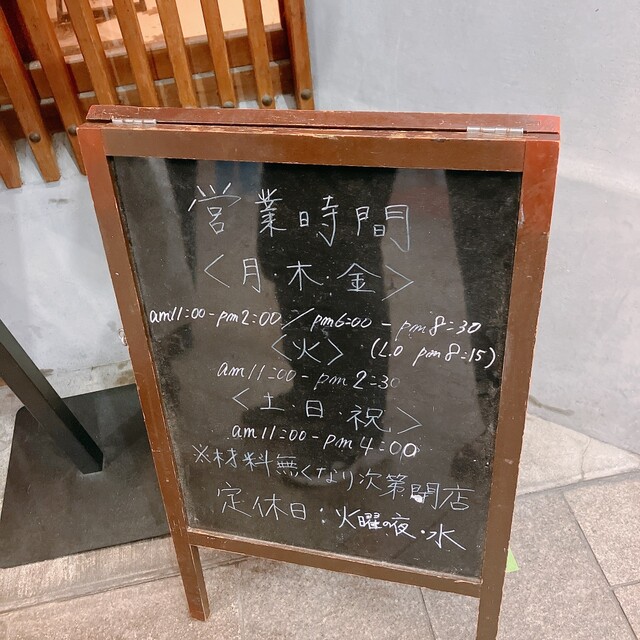 営業時間
〈月・木・金〉
am11:00-pm2:00/pm6:00-pm8:30
〈火〉 (L.O pm8:15)
am11:00-pm2:30
〈土・日・祝〉
am11:00-pm4:00
※材料無くなり次第閉店
定休日:火曜の夜・水